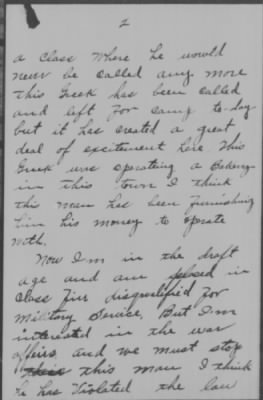 2
a Class where he would
never be called any more
this Greek has been called
and left for camp to-day
but it has created a great
deal of excitement here this
Greek was oprating a Bakery
in this town I think
this man has been furnishing
him his money to oprate
with.
Now I,m in the draft
age and am placed in
Class five disqualified for
Military Service, But I,m
interested in the war
affairs and we must stop
this man I think
he has Violated the law